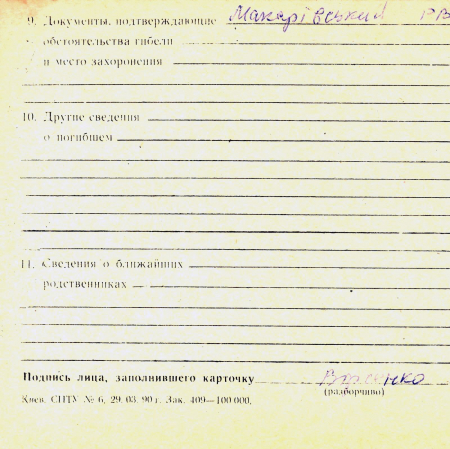 9. Документы, подтверждающие Макарівський РВ
обстоятельства гибели
и место захоронения
10. Другие сведения
о погибшем
11. Сведения о ближайших
родственниках
Подпись лица, заполнившего карточку
(разборчиво)
Киев. СПТУ № 6, 29. 03. 90 г. Зак. 409—100 000.